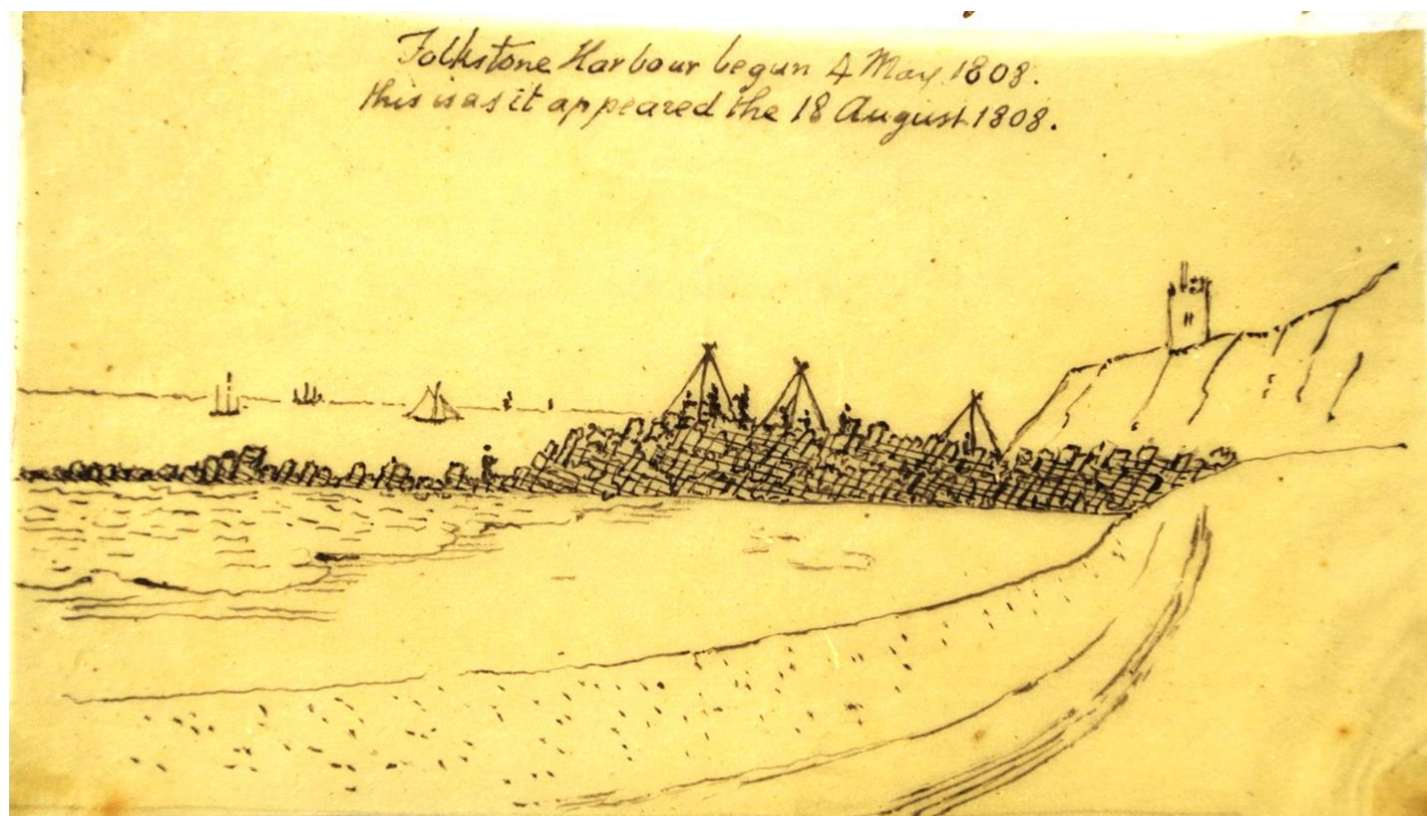 Folkstone Harbour begun 4 May 1808.
this is as it appeared the 18 August 1808.